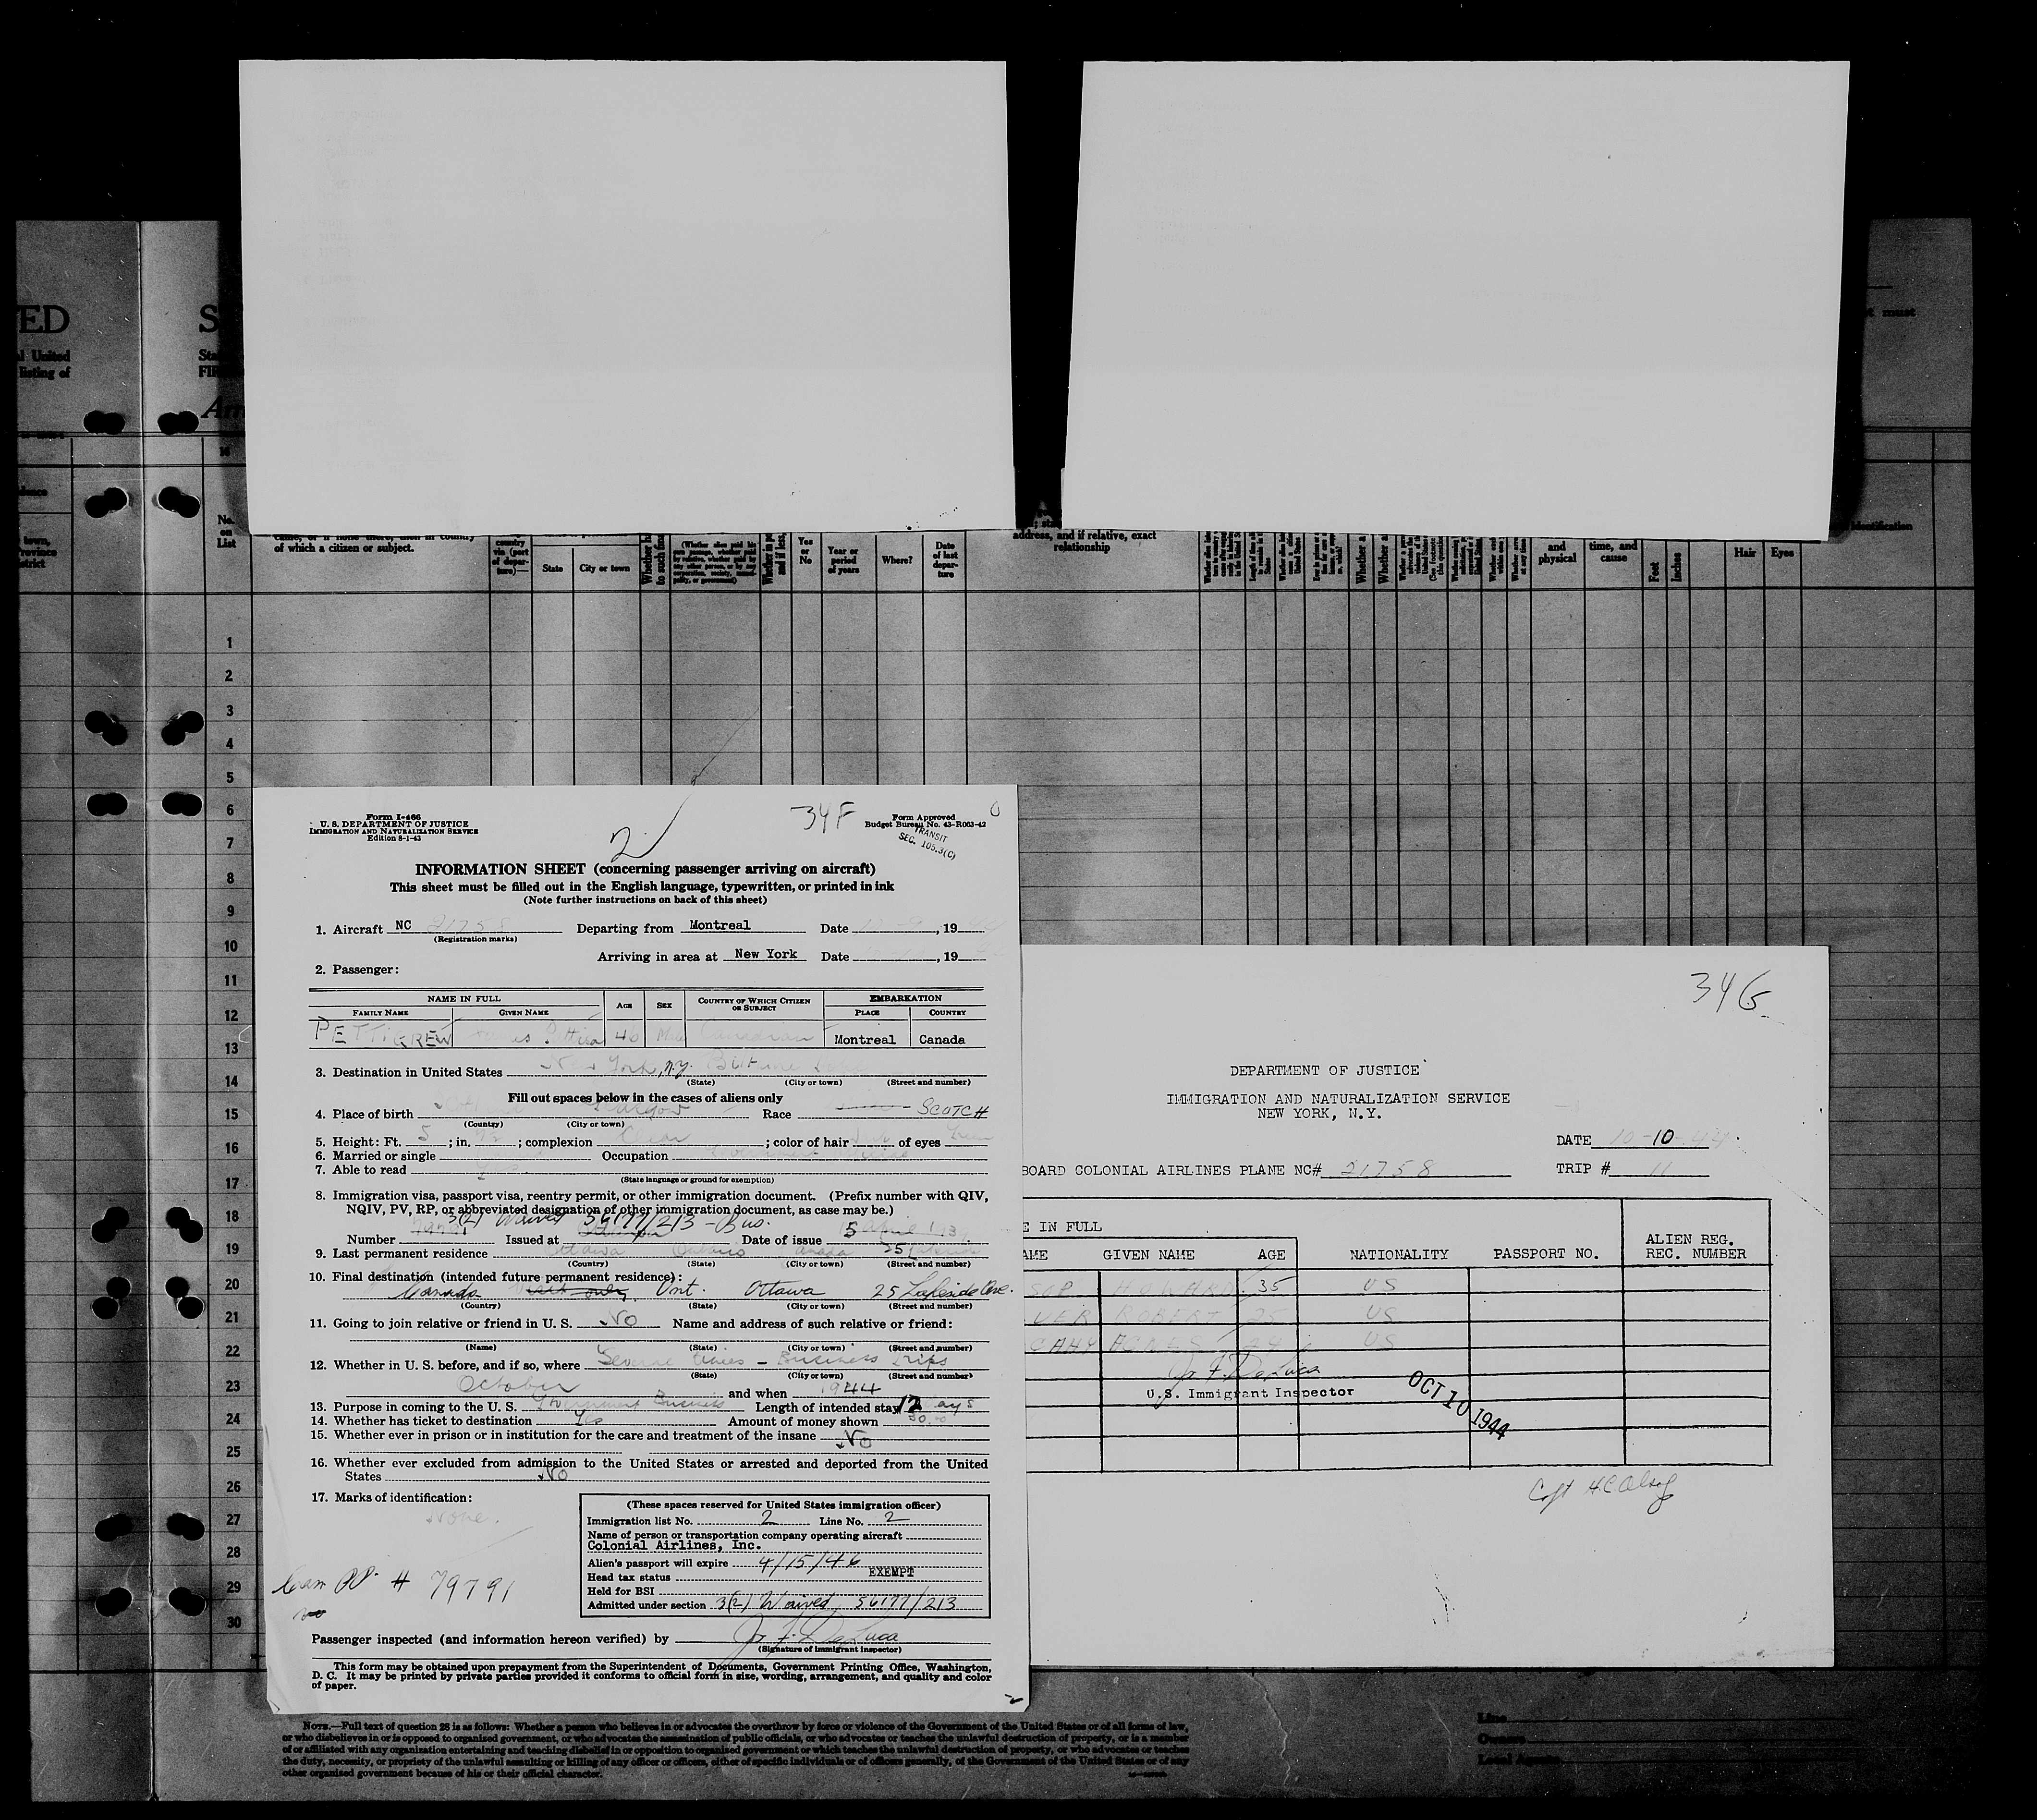 ED
l United
listing of
S
Sta
FIR
Am
No.
on
List
of which a citizen or subject.
country
via (port
of depar-
ture)—
State
City or town
Yes
or
No
Year or
period
of years
Where?
Date
of last
depar-
ture
address, and if relative, exact
relationship
and
physical
time, and
cause
Feet
Inches
Hair
Eyes
must
identification
1
2
3
4
5
6
7
8
9
10
11
12
13
14
15
16
17
18
19
20
21
22
23
24
25
26
27
28
29
30
Form I-466
U. S. DEPARTMENT OF JUSTICE
IMMIGRATION AND NATURALIZATION SERVICE
Edition 8-1-43
2
34F
Form Approved
Budget Bureau No. 43-R063-42
TRANSIT
SEC. 105.3(C)
INFORMATION SHEET (concerning passenger arriving on aircraft)
This sheet must be filled out in the English language, typewritten, or printed in ink
(Note further instructions on back of this sheet)
1. Aircraft NC 21758 Departing from Montreal Date , 19
(Registration marks)
Arriving in area at New York Date , 19
2. Passenger:
NAME IN FULL AGE SEX COUNTRY OF WHICH CITIZEN OR SUBJECT EMBARKATION
FAMILY NAME GIVEN NAME PLACE COUNTRY
PETTIGREW 40 Canadian Montreal Canada
3. Destination in United States New York, N.Y.
(State) (City or town) (Street and number)
Fill out spaces below in the cases of aliens only
4. Place of birth Glasgow Race SCOTCH
(Country) (City or town)
5. Height: Ft. 5 ; in. ; complexion Clear ; color of hair of eyes
6. Married or single Occupation
7. Able to read Yes
(State language or ground for exemption)
8. Immigration visa, passport visa, reentry permit, or other immigration document. (Prefix number with QIV,
NQIV, PV, RP, or abbreviated designation of other immigration document, as case may be.)
3(2) Waived 56177/213 - Bus.
Number Issued at Date of issue 5 April 193
9. Last permanent residence Ottawa Ontario Canada 25
(Country) (State) (City or town) (Street and number)
10. Final destination (intended future permanent residence):
Canada Ont. Ottawa 25 Lakeside Ave.
(Country) (State) (City or town) (Street and number)
11. Going to join relative or friend in U. S. No Name and address of such relative or friend:
(Name) (State) (City or town) (Street and number)
12. Whether in U. S. before, and if so, where Several times - Business trips
(State) (City or town) (Street and number)
October and when 1944
13. Purpose in coming to the U. S. Government Business Length of intended stay 12 days
14. Whether has ticket to destination Yes Amount of money shown 50.00
15. Whether ever in prison or in institution for the care and treatment of the insane No
16. Whether ever excluded from admission to the United States or arrested and deported from the United
States No
17. Marks of identification:
None.
(These spaces reserved for United States immigration officer)
Immigration list No. 2 Line No. 2
Name of person or transportation company operating aircraft
Colonial Airlines, Inc.
Alien's passport will expire 4/15/46
Head tax status EXEMPT
Held for BSI
Admitted under section 3(2) Waived 56177/213
Can PP. # 79791
Passenger inspected (and information hereon verified) by J. F. DeLuca
(Signature of immigrant inspector)
This form may be obtained upon prepayment from the Superintendent of Documents, Government Printing Office, Washington,
D. C. It may be printed by private parties provided it conforms to official form in size, wording, arrangement, and quality and color
of paper.
34G
DEPARTMENT OF JUSTICE
IMMIGRATION AND NATURALIZATION SERVICE
NEW YORK, N.Y.
DATE 10-10-44
BOARD COLONIAL AIRLINES PLANE NC# 21758 TRIP # 11
E IN FULL
AME GIVEN NAME AGE NATIONALITY PASSPORT NO. ALIEN REG.
REC. NUMBER
SOP HOWARD 35 US
VER ROBERT 25 US
CAHY AGNES 24 US
J. F. DeLuca
U.S. Immigrant Inspector
OCT 10 1944
Capt HC Alsop
NOTE.—Full text of question 28 is as follows: Whether a person who believes in or advocates the overthrow by force or violence of the Government of the United States or of all forms of law,
or who disbelieves in or is opposed to organized government, or who advocates the assassination of public officials, or who advocates or teaches the unlawful destruction of property, or is a member
of or affiliated with any organization entertaining and teaching disbelief in or opposition to organized government or which teaches the unlawful destruction of property, or who advocates or teaches
the duty, necessity, or propriety of the unlawful assaulting or killing of any officer or officers, either of specific individuals or of officers generally, of the Government of the United States or of any
other organized government because of his or their official character.
Line
Owners
Local Agents